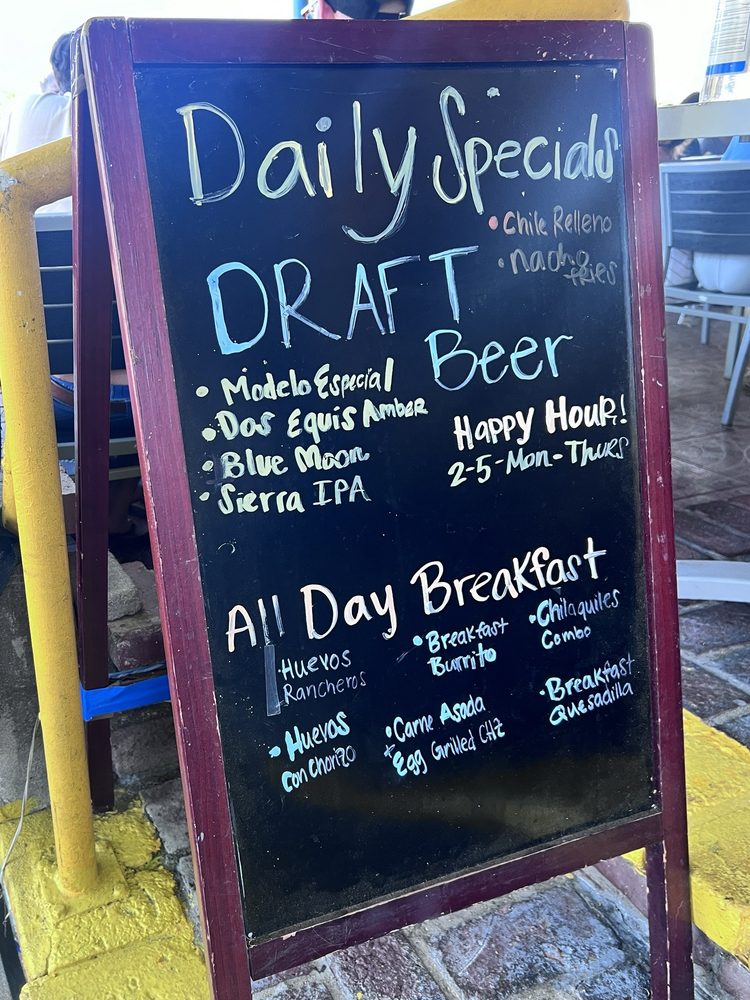 Daily Specials
• Chile Relleno
• nacho
fries
DRAFT
Beer
• Modelo Especial
• Dos Equis Amber
• Blue Moon
• Sierra IPA
Happy Hour!
2-5-Mon-Thurs
All Day Breakfast
Huevos
Rancheros
• Breakfast
Burrito
• Chilaquiles
Combo
• Huevos
con Chorizo
• Carne Asada
+
Egg Grilled CHZ
• Breakfast
Quesadilla